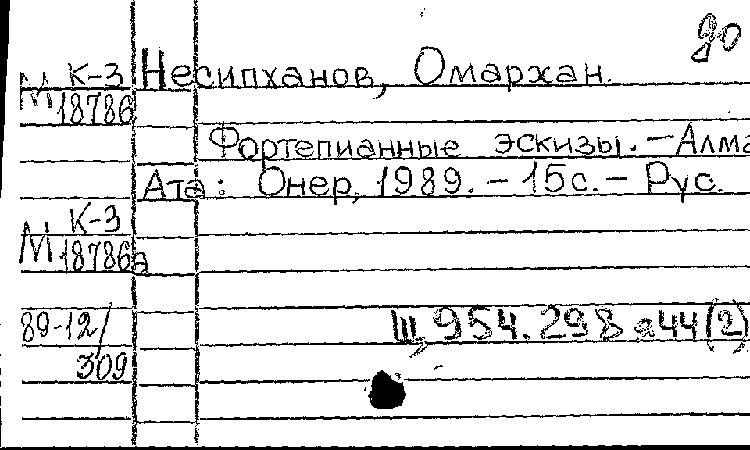 до
К-3 Несипханов, Омархан.
М 18786
Фортепианные эскизы. - Алма
Ата: Онер, 1989. - 15с. - Рус.
К-3
М 18786а
89-12/
309
Щ 954.298 я44(2)